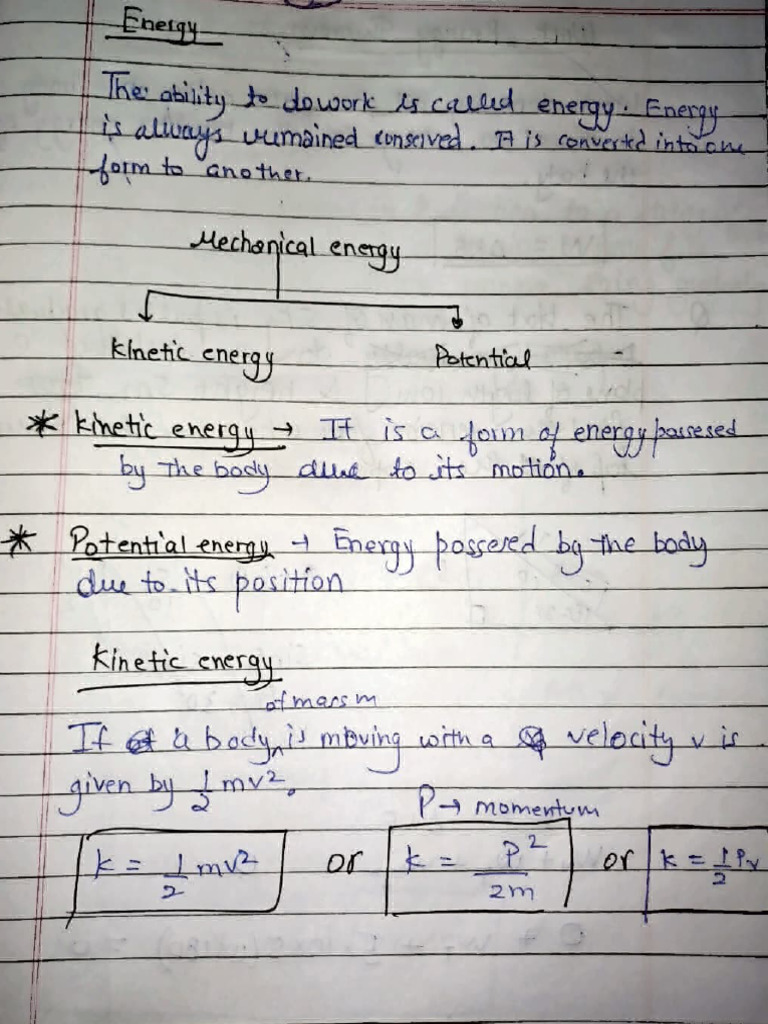 Energy
The ability to do work is called energy. Energy
is always remained conserved. It is converted into one
form to another.
Mechanical energy
Kinetic energy Potential
* Kinetic energy → It is a form of energy possesed
by the body due to its motion.
* Potential energy → Energy possesed by the body
due to its position
Kinetic energy
of mass m
If a body is moving with a velocity v is
given by 1/2 mv².
P → momentum
k = 1/2 mv² or k = P²/2m or k = 1/2 Pv